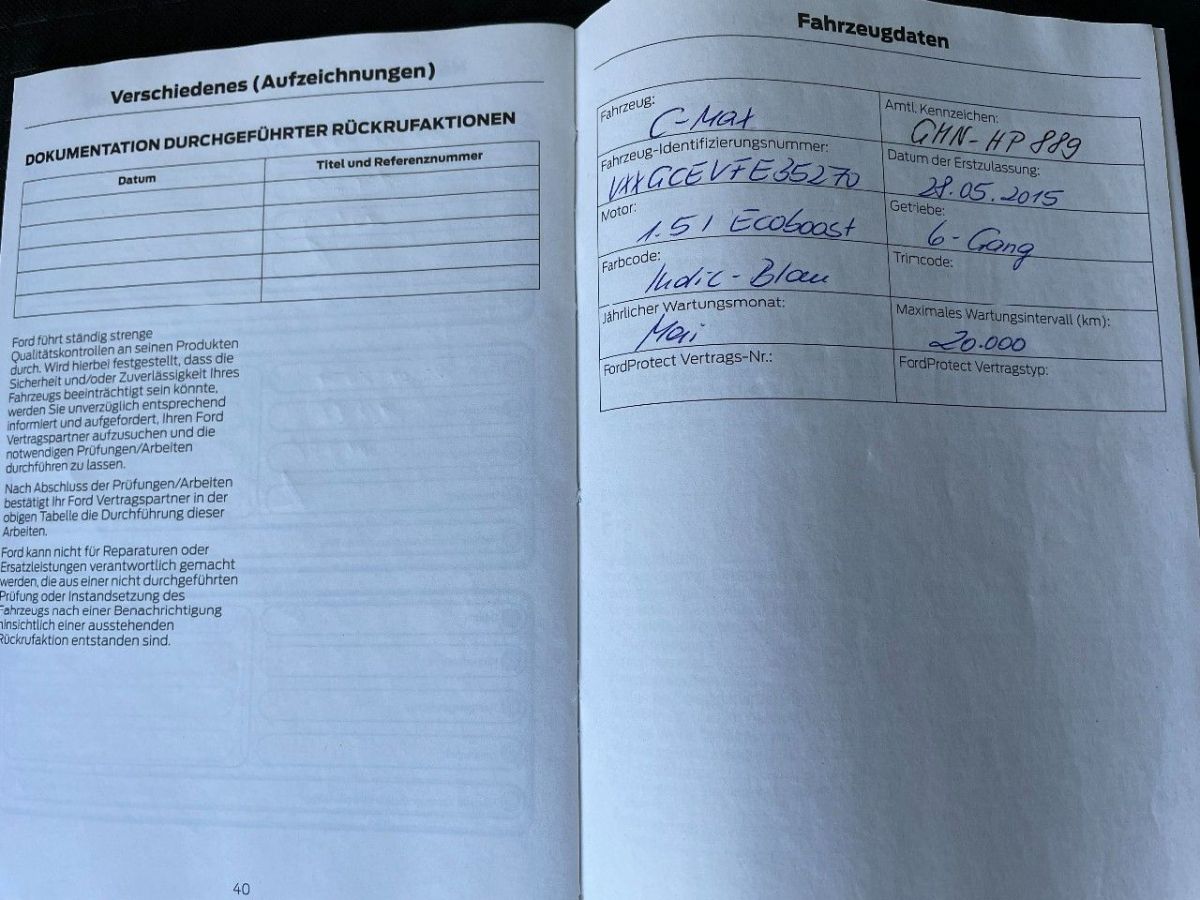 Verschiedenes (Aufzeichnungen)
DOKUMENTATION DURCHGEFÜHRTER RÜCKRUFAKTIONEN
Datum
Titel und Referenznummer
Ford führt ständig strenge
Qualitätskontrollen an seinen Produkten
durch. Wird hierbei festgestellt, dass die
Sicherheit und/oder Zuverlässigkeit Ihres
Fahrzeugs beeinträchtigt sein könnte,
werden Sie unverzüglich entsprechend
informiert und aufgefordert, Ihren Ford
Vertragspartner aufzusuchen und die
notwendigen Prüfungen/Arbeiten
durchführen zu lassen.
Nach Abschluss der Prüfungen/Arbeiten
bestätigt Ihr Ford Vertragspartner in der
obigen Tabelle die Durchführung dieser
Arbeiten.
Ford kann nicht für Reparaturen oder
Ersatzleistungen verantwortlich gemacht
werden, die aus einer nicht durchgeführten
Prüfung oder Instandsetzung des
Fahrzeugs nach einer Benachrichtigung
hinsichtlich einer ausstehenden
Rückrufaktion entstanden sind.
40
Fahrzeugdaten
Fahrzeug:
C-Max
Amtl. Kennzeichen:
GHN-HP 889
Fahrzeug-Identifizierungsnummer:
VXXGCEVFE35270
Datum der Erstzulassung:
28.05.2015
Motor:
1.5 l Ecoboost
Getriebe:
6-Gang
Farbcode:
Indic-Blau
Trimcode:
Jährlicher Wartungsmonat:
Mai
Maximales Wartungsintervall (km):
20.000
FordProtect Vertrags-Nr.:
FordProtect Vertragstyp: